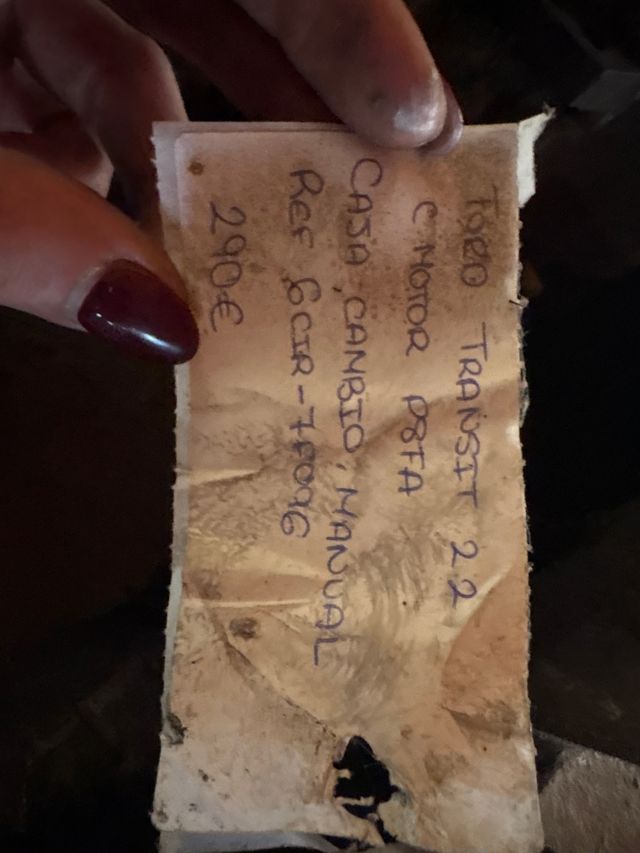 FORD TRANSIT 2.2
C MOTOR P8FA
CAJA CAMBIO, MANUAL
REF 6C1R-7F096
290€